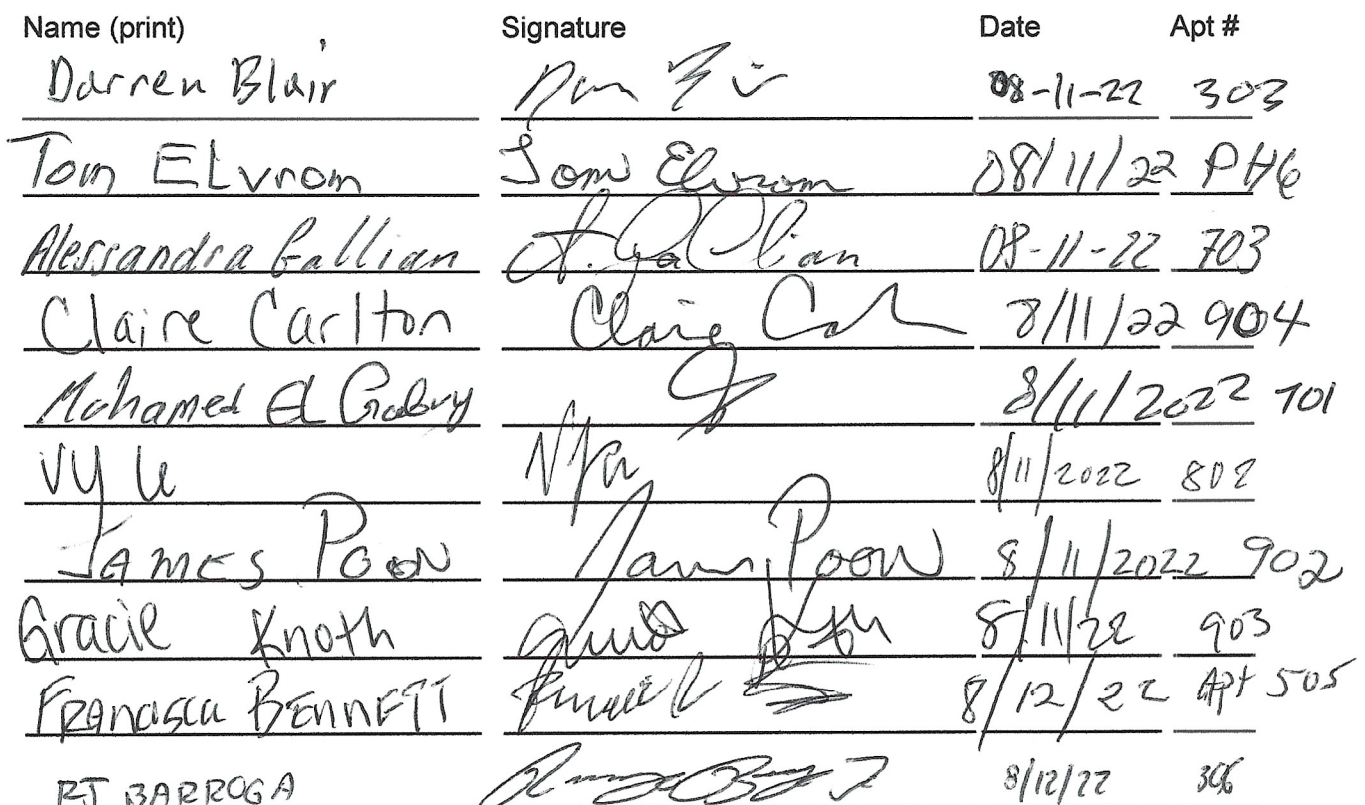 Name (print) Signature Date Apt #
Darren Blair 08-11-22 303
Tom ELvrom Tom Elvrom 08/11/22 PH6
Alessandra Gallian A. Gallian 08-11-22 703
Claire Carlton Claire 8/11/22 904
Mohamed El 8/11/2022 701
Vy Le 8/11/2022 802
JAMES POON James Poon 8/11/2022 902
Gracie Knoth 8/11/22 903
FRANCISCA BENNETT 8/12/22 Apt 505
RJ BARROGA 8/12/22 306